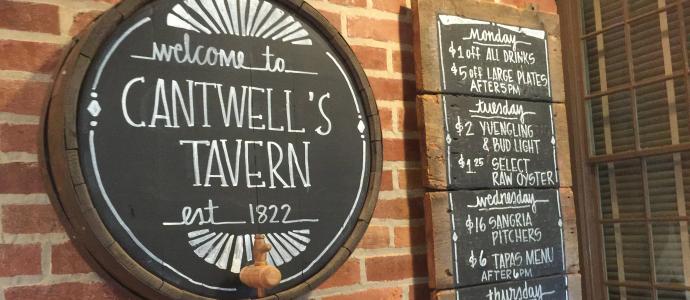 welcome to
CANTWELL'S
TAVERN
est 1822
Monday
$1 off ALL DRINKS
$5 off LARGE PLATES
AFTER 5 PM
tuesday
$2 YUENGLING
& BUD LIGHT
$1.25 SELECT
RAW OYSTER
wednesday
$16 SANGRIA
PITCHERS
$6 TAPAS MENU
AFTER 6 PM
thursday